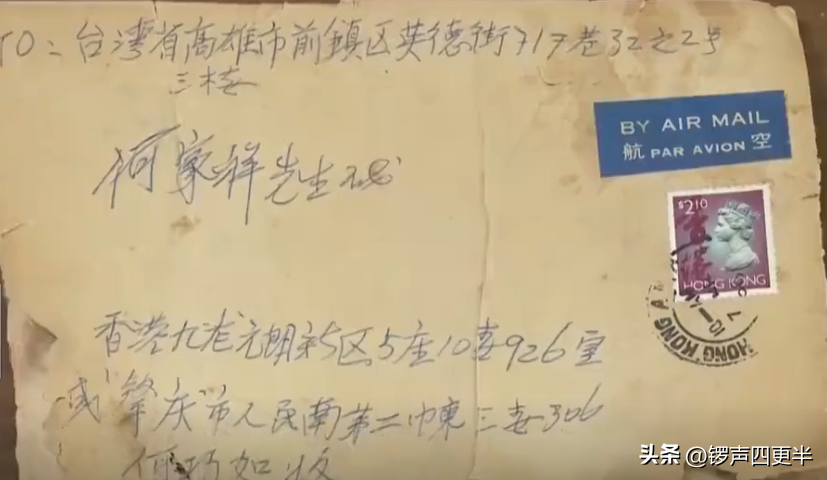 TO：台湾省高雄市前鎮区英德街717巷32之2号
三楼
何家祥先生收
BY AIR MAIL
航 PAR AVION 空
$2.10
HONG KONG
HONG KONG
香港九龙元朗新区5座10楼926室
或肇庆市人民南第二巾東三楼306
何巧如收
头条 @锣声四更半